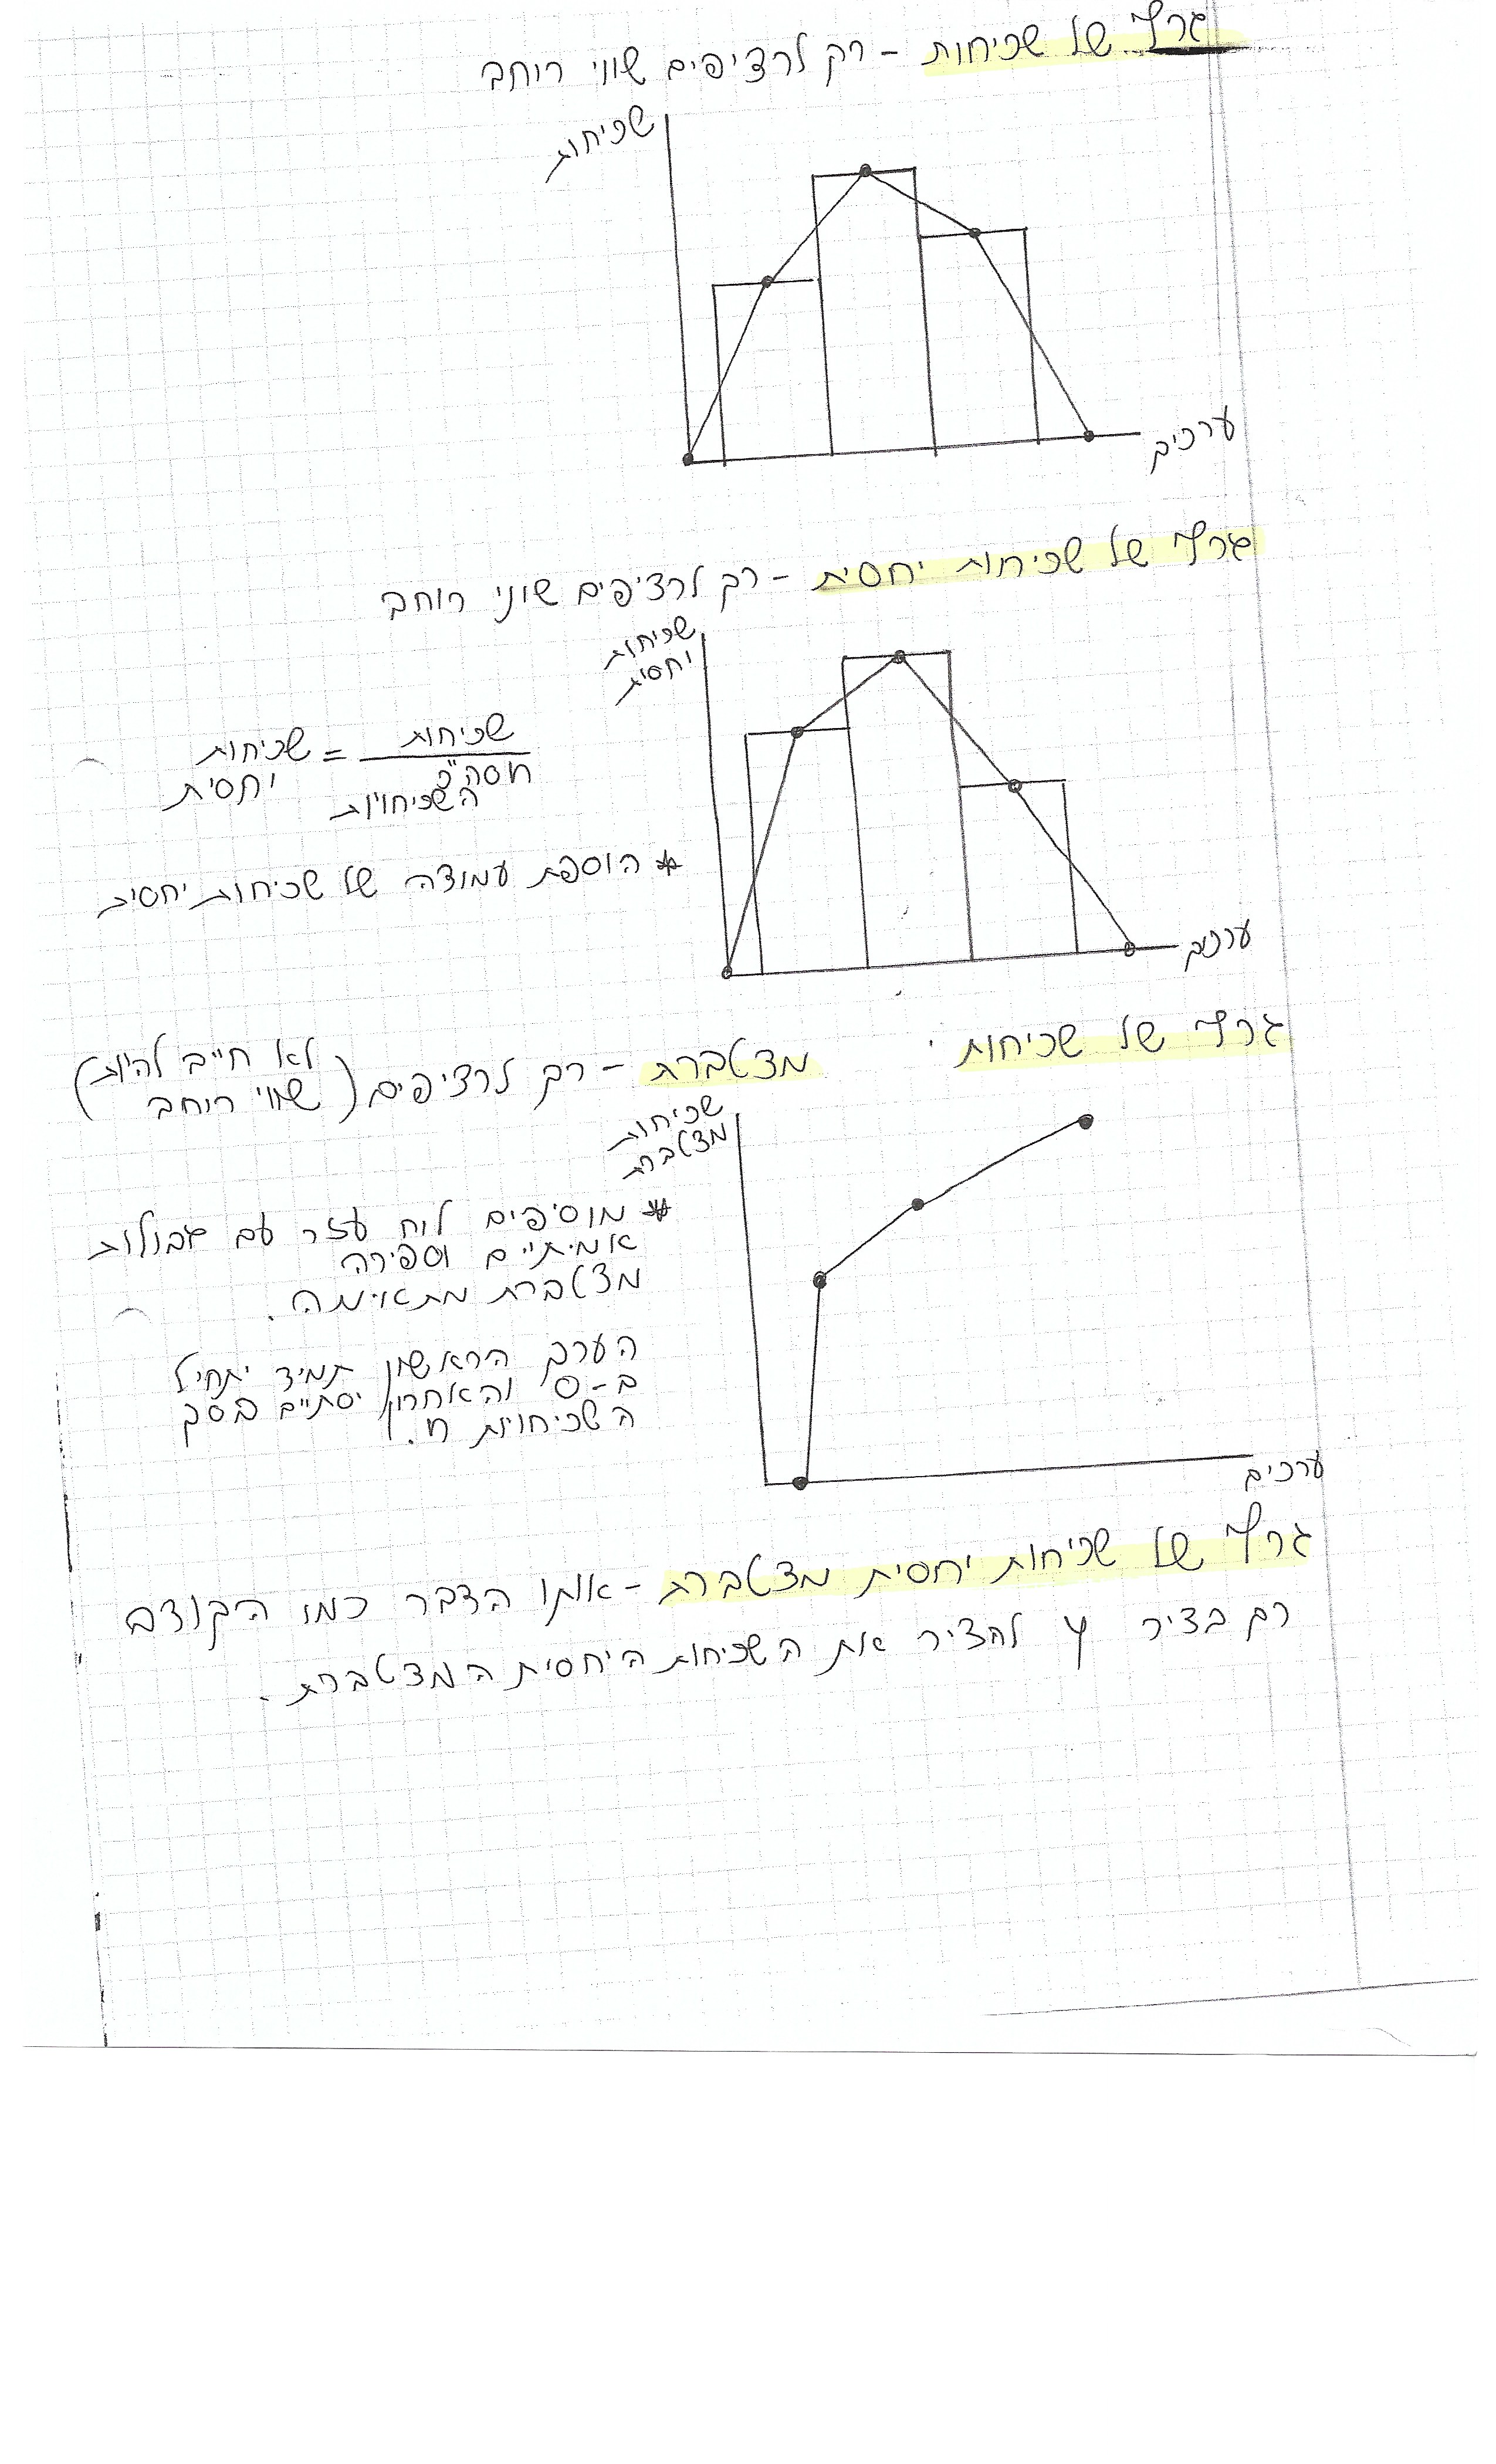 גרף של שכיחות - רק לרציפים שווי רוחב
שכיחות
ערכים
גרף של שכיחות יחסית - רק לרציפים שווי רוחב
שכיחות
יחסית
שכיחות יחסית = שכיחות
סה"כ n
השכיחויות
* הוספת עמודה של שכיחות יחסית
ערכים
גרף של שכיחות מצטברת - רק לרציפים (לא חייב להיות
שווי רוחב)
שכיחות
מצטברת
* מוסיפים לוח עזר עם גבולות
אמיתיים וספירה
מצטברת מתאימה.
הערך הראשון תמיד יתחיל
ב-0 והאחרון יסתיים בסך
השכיחויות n.
ערכים
גרף של שכיחות יחסית מצטברת - אותו הדבר כמו הקודם
רק בציר y להציר את השכיחות היחסית המצטברת.